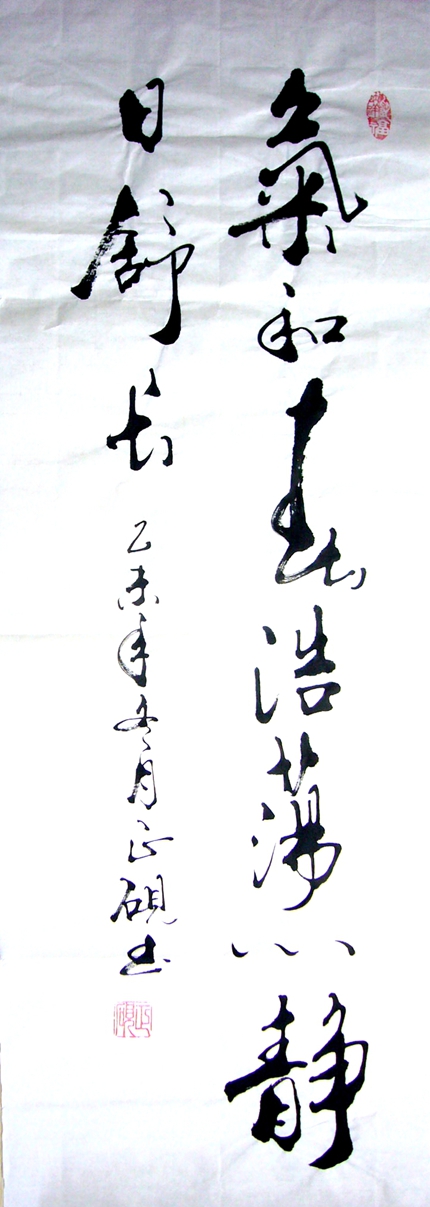 氣和春浩蕩心静
日舒長
乙未年冬月正硯书